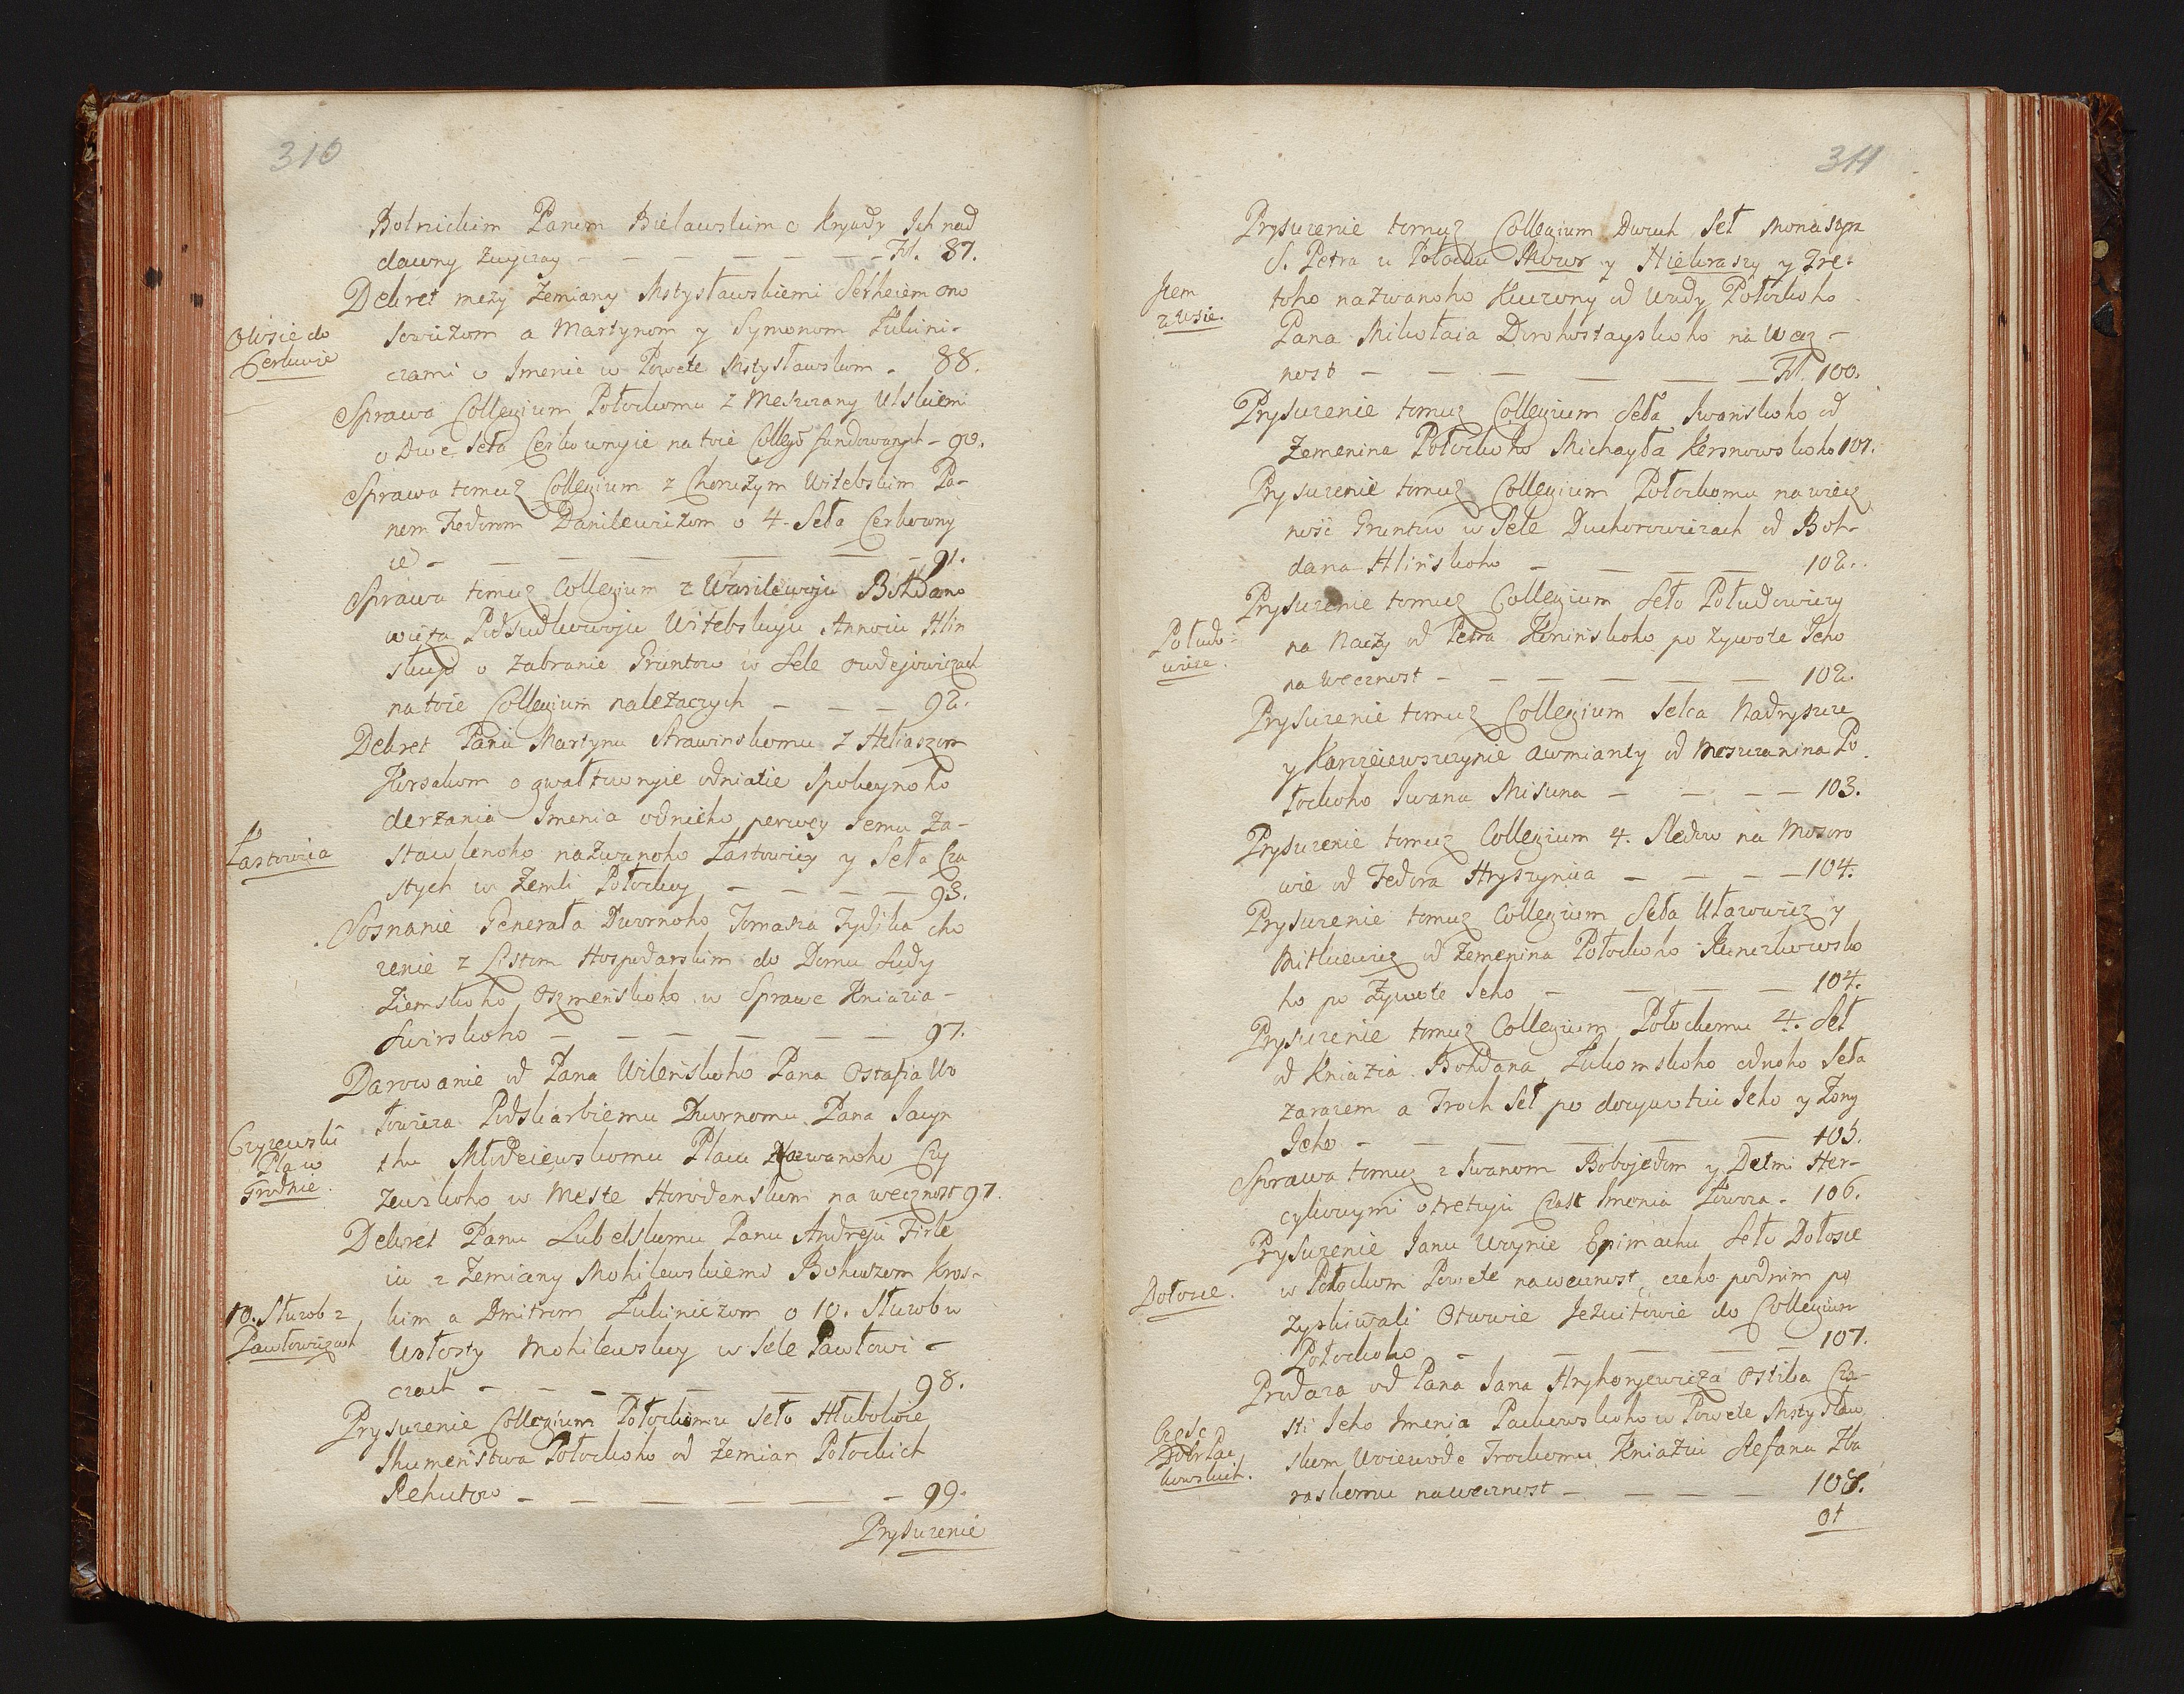 310
Bolnickim Panem Bielawskim o krywdy Ich nad
dawny zwyczay - - - - - - - Fol. 87.
Dekret mezy Zemiany Mstysławskiemi Serheiem Ono
O Wsie do
Cerkwie
sowiczom a Martynom y Symonom Łukini-
czami o Imenie w Powete Mstysławskom - 88.
Sprawa Collegium Połockomu z Mesczany Ulskiemi
o Dwe Seła Cerkownyie na toie Colleg. fundowanych - 90.
Sprawa tomuz Collegium z Choruzym Witebskim Pa-
nem Fedorom Danilewiczom o 4. Seła Cerkowny
ie - - - - - - 91.
Sprawa tomuz Collegium z Wasilewoju Bohdano
wicza Podsudkowoju Witebskuju Annoiu Hlin
skuju o zabranie Gruntow w Sele
na toie Collegium nalezaczych - - - 92.
Dekret Panu Martynu Strawinskomu z Heliaszom
Korsakom o gwałtownyie odniatie Spokoynoho
derzania Imenia odnieho perwey Jemu Za-
Łastowica
stawlenoho nazwanoho Łastowicy y Seła Cza
stych w Zemli Połockoy - - - - 93.
Sosnanie Generała Dwornoho Tomasza cho
zenie z Listom Hospodarskim do Domu Sudy
Ziemskoho Oszmeńskoho w Sprawe Kniazia -
Swirskoho - - - - - - 97.
Darowanie od Pana Wileńskoho Pana Ostafia Wo
łowicza Podskarbiemu Dwornomu Pana Jacyn
Czyzewski
Plac w
Grodnie.
thu Młodeiewskomu Placu Nazwanoho Czy
zewskoho w Meste Horodenskim na wecznost 97.
Dekret Panu Lubelskomu Panu Andreju Firle
iu z Zemiany Mohilewskiemi Bohuszom Kros-
10. Słuzob z
Pawłowiczach
kim a Dmitrom Łukiniczom o 10. Słuzob w
Wołosty Mohilewskoy w Sele Pawłowi -
czach - - - - - - 98.
Prysuzenie Collegium Połockomu Seło Hłubokoie
Ihumeństwa Połockoho od Zemian Połockich
Rehutow - - - - - - 99.
Prysuzenie
311
Prysuzenie tomuz Collegium Dwuch Seł Monastyra
S. Petra u Połocku y y Tre-
Item
2 Wsie.
toho nazwanoho od Wody Połockoho
Pana Mikołaia Dorohostayskoho na Wecz -
nost - - - - - - Fol. 100.
Prysuzenie tomuz Collegium Seła Iwanskoho od
Zemenina Połockoho Michayła Kersnowskoho 101.
Prysuzenie tomuz Collegium Połockomu na wiecz
ność Gruntow w Sele Duchorowiczach od Boh-
dana Hlińskoho - - - - 102.
Prysuzenie tomuz Collegium Seło Połudowicy
Połudo-
wicze.
na Naczy od Petra Kłmińskoho po zywote Jeho
na wecznost - - - - - - 102.
Prysuzenie tomuz Collegium Selca Nadrysuie
y Karzeiewszczynie Awmianty od Meszczanina Po
łockoho Iwana Misuna - - - - 103.
Prysuzenie tomuz Collegium 4. Sledow na Mozoro
wie od Fedora Hryszynica - - - - 104.
Prysuzenie tomuz Collegium Seła Ułazowicz y
Mitkiewicz od Zemenina Połockoho
ho po Zywote Jeho - - - - 104.
Prysuzenie tomuz Collegium Połockomu 4. Seł
od Kniazia Bohdana Łukomskoho odnoho Seła
zarazem a Troch Seł po dozywotiu Jeho y Zony
Jeho - - - - - - 105.
Sprawa tomuz z Iwanom Bobojedom y Detmi Her-
cykowymi o tretuju Czast Imenia - 106.
Prysuzenie Janu Epimachu Seło Dołosie
Dołosie.
w Połockom Powete na wecznost, czeho pod nim po
zyskiwali Otcowie Jezuitowie do Collegium
Połockoho - - - - 107.
Prodaza od Pana Jana Hryhorjewicza Ostika Cza-
Część
Dobr Pac
kowskich.
sti Jeho Imenia Packowskoho w Powete Mstysław
skom Woiewode Trockomu Kniaziu Stefanu Zba
raskomu na wecznost - - - - 108.
Ot